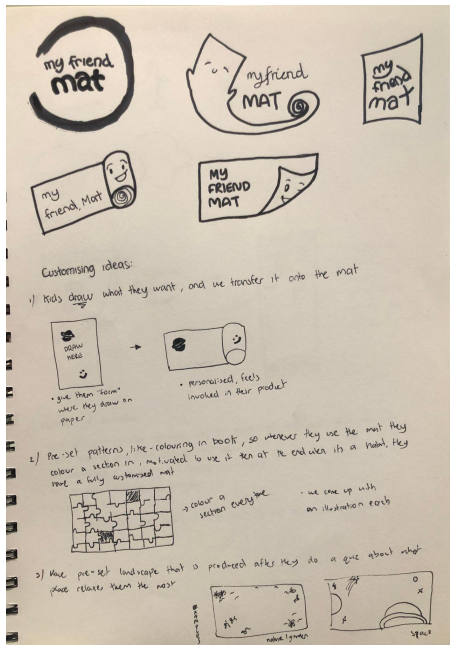 my friend
mat
my friend
MAT
my
friend
mat
my
friend, Mat
MY
FRIEND
MAT
Customising ideas:
1) Kids draw what they want, and we transfer it onto the mat
DRAW
HERE
• give them "form"
were they draw on
paper
• personalised, feels
involved in their product
2) Pre-set patterns, like-colouring in book, so whenever they use the mat they
colour a section in, motivated to use it then at the end when its a habit, they
have a fully customised mat
→ colour a
section everytime
- we come up with
an illustration each
3) Have pre-set landscape that is produced after they do a quiz about what
place relaxes them the most
nature/green
space